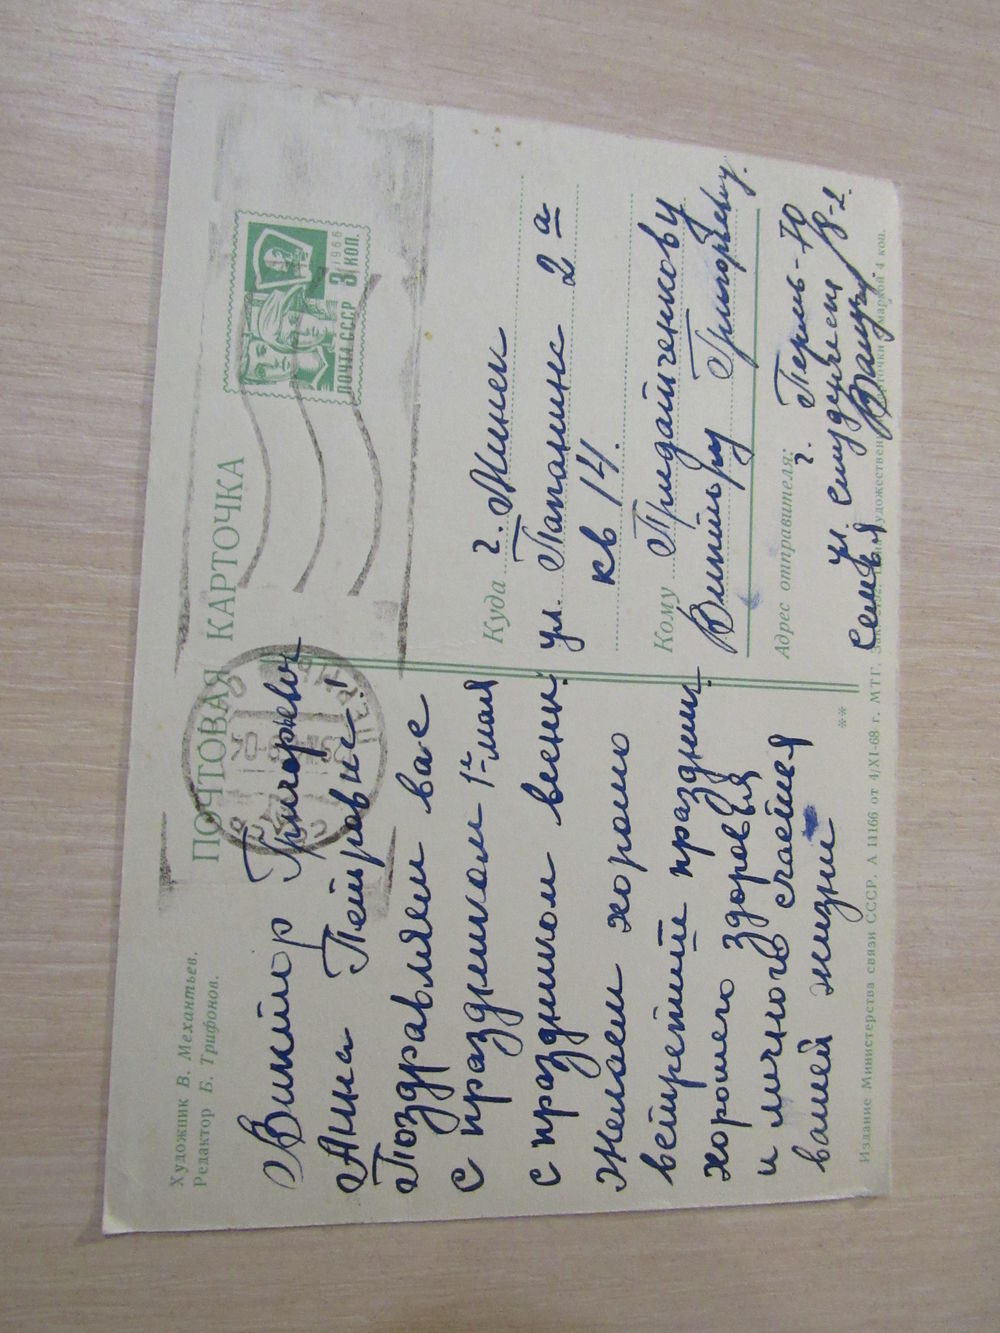 Художник В. Механтьев.
Редактор Б. Трифонов.
ПОЧТОВАЯ КАРТОЧКА
ПОЧТА СССР 3 КОП.
1966
Виктор Григорьевич
Анна Петровна!
Поздравляем вас
с праздником 1го мая
с праздником весны.
Желаем хорошо
встретить праздник.
хорошего здоровья
и личного счастья
вашей жизни
Куда г. Минск
ул. Папанина 2а
кв 14.
Кому Придатченкову
Виктору Григорьевичу.
Адрес отправителя: г. Пермь-70
ул. студенческая 18-2.
семья
Издание Министерства связи СССР. А 11166 от 4/XI-68 г. МТГ.
маркой 4 коп.